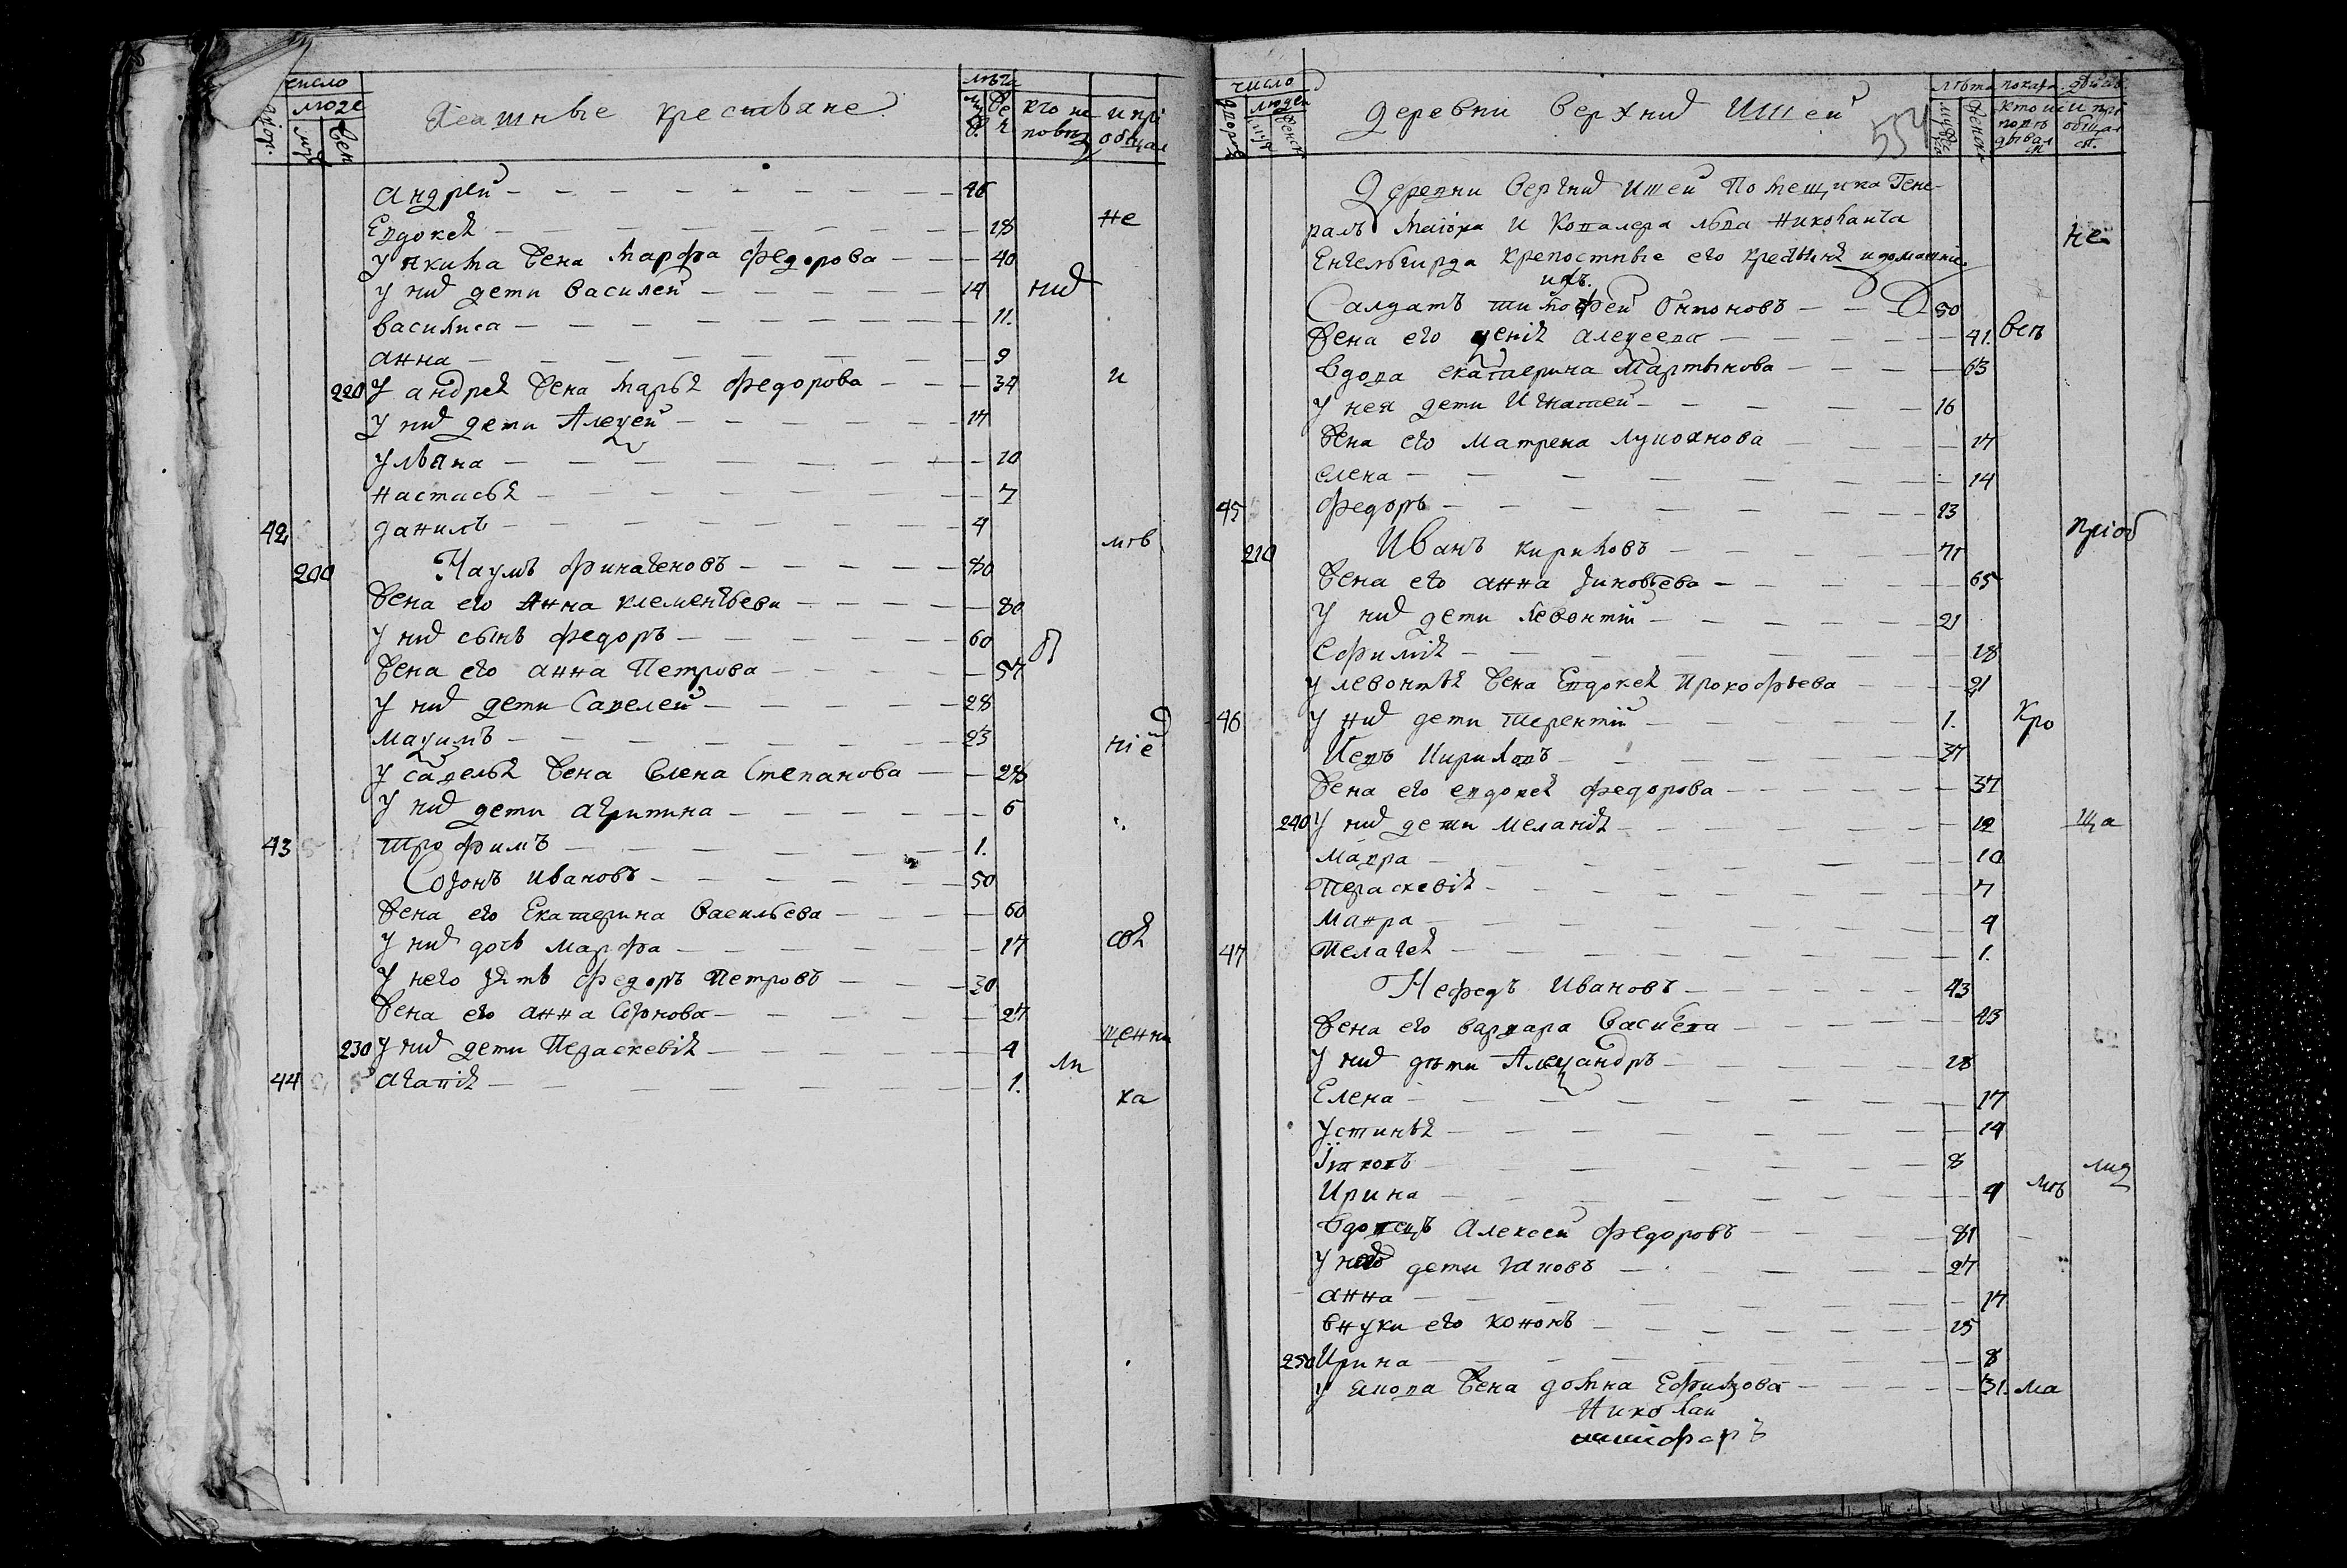 число
люде
муж
жен
Ясашные крестьяне
лѣта
кто не
и прі
общал
Андрей 46
Евдокея 18
не
У Якима жена Марфа Федорова 40
У них дети Василей 14
них
Василиса 11.
Анна 9
220 У Андрея жена Марья Федорова 34
и
У них дети Алеѯей 14
Ульяна 10
Настасья 7
42 Данилъ 4
200 Наумъ 80
Жена его Анна Клементьева 80
У них сынъ Федоръ 60
Жена его Анна Петрова 57
У них дети Савелей 28
Маѯимъ 23
У Савелья жена Елена Степанова 28
У них дети Агрипина 6
43 Трофимъ 1.
Созонъ Ивановъ 50
Жена его Екатерина Васильева 60
У них дочь Марфа 17
У него зять Федоръ Петровъ 30
Жена его Анна 27
щенни
230 У них дети Параскевія 4
ли
44 Агапія 1.
ка
число
людей
Деревни Верхних Ишей
554
лѣта
кто
и прі
общал
Деревни Верхних Ишей Помещика Гене-
ралъ Маіора и Кавалера Льва Николаича
Енгельгарда крепостные его крестьяня и домашніе.
не
Салдатъ Тимофей Антоновъ 50
Жена его Ѯенія Алеѯеева 41.
Вдова Екатерина Мартынова 63
У нея дети Игнатей 16
Жена его Матрена Лукоянова 17
Елена 14
45 Федоръ 23
пріоб
210 Иванъ Кириловъ 75
Жена его Анна Зиновьева 65
У них дети Левонтій 21
Ефимія 18
У Левонтья жена Евдокея Прокофьева 21
46 У них дети Терентій 1.
Кро
Левъ Кириловъ 37
Жена его Евдокея Федорова 37
240 У них дети Меланія 12
ща
Мавра 10
Параскевія 7
Мавра 4
47 Пелагея 1.
Нефедъ Ивановъ 43
Жена его Варвара 43
У них дѣти Алеѯандръ 18
Елена 17
Устинья 14
Іяковъ 8
Ирина 4
мѣ
Вдовецъ Алексей Федоровъ 81
У него дети Іаковъ 27
Анна 17
Внуки его Кононъ 15
250 Ирина 8
У Якова жена Домна Ефимова 31.
ма
Николай